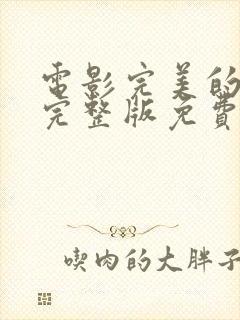 電影完美的
完整版免費
喫肉的大胖子